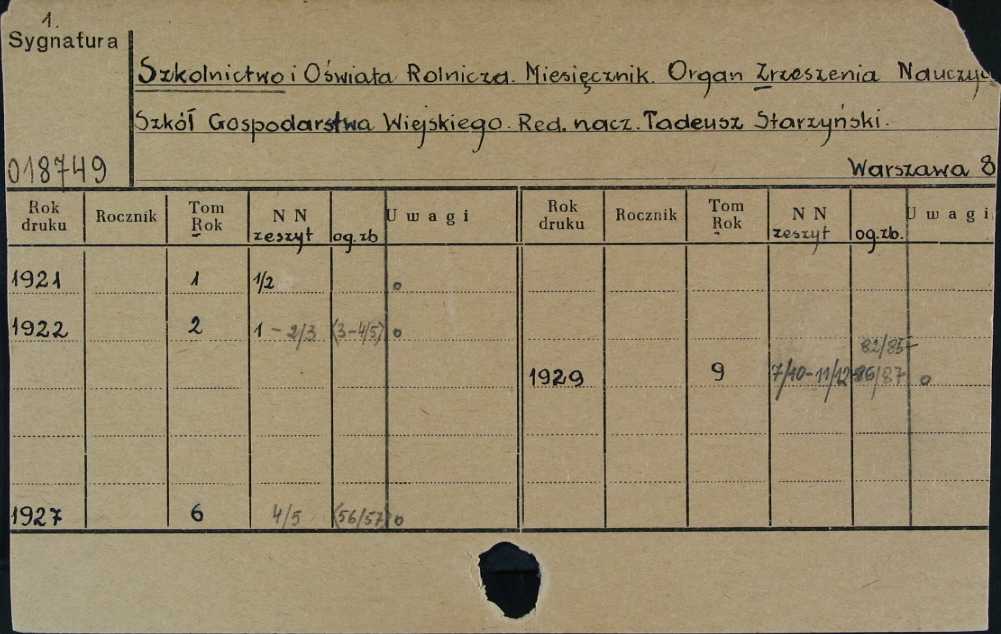 1.
Sygnatura
Szkolnictwo i Oświata Rolnicza. Miesięcznik. Organ Zrzeszenia Nauczyc
Szkół Gospodarstwa Wiejskiego. Red. nacz. Tadeusz Starzyński.
018749
Warszawa 8
Rok druku Rocznik Tom Rok NN zeszyt og.zb Uwagi Rok druku Rocznik Tom Rok NN zeszyt og.zb. Uwagi
1921 1 1/2 o
1922 2 1 - 2/3 (3-4/5) o
82/85-
1929 9 7/10-11/12 86/87 o
1927 6 4/5 (56/57) o